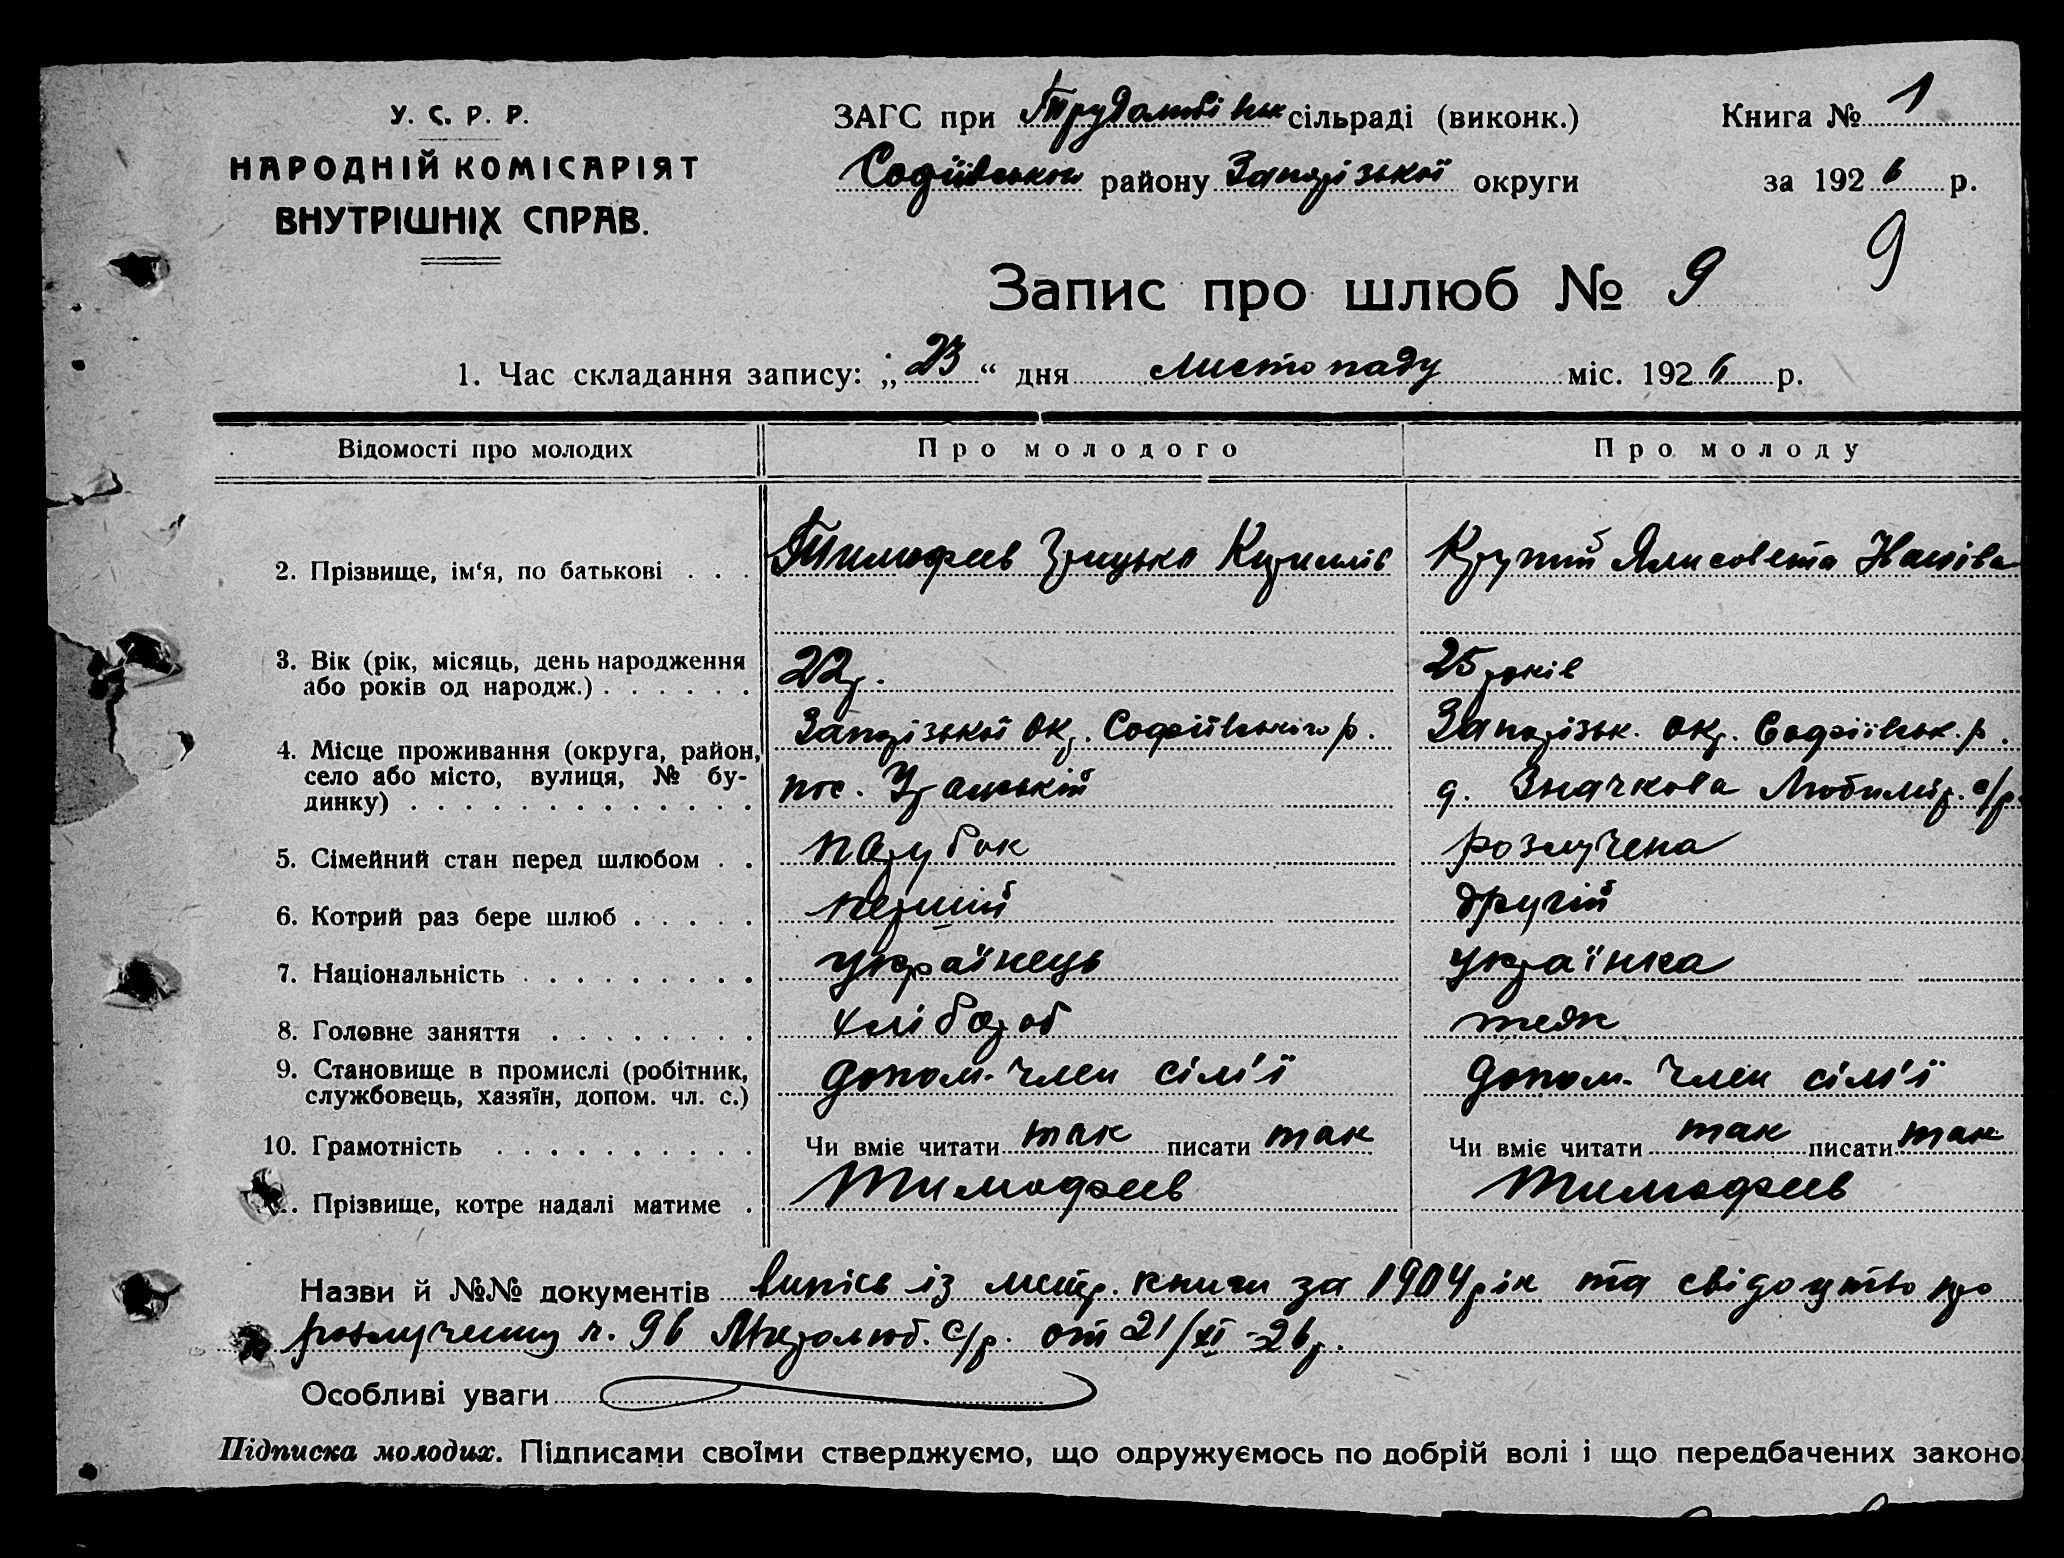 У. С. Р. Р.
НАРОДНІЙ КОМІСАРІЯТ
ВНУТРІШНІХ СПРАВ.
ЗАГС при Трудолюбівськ сільраді (виконк.)
Софіївського району Запорізької округи
Книга № 1
за 1926 р.
9
Запис про шлюб № 9
1. Час складання запису: „23“ дня листопаду міс. 1926 р.
Відомості про молодих Про молодого Про молоду
2. Прізвище, ім‘я, по батькові . . . Тимофеев Грицько Кирилів Крупій Ялисовета
3. Вік (рік, місяць, день народження
або років од народж.) . . . . . . 22 р. 25 років
4. Місце проживання (округа, район, Запорізької окр. Софіївського р. Запорізьк. окр. Софіївськ. р.
село або місто, вулиця, № бу- пос. д. Значкова Любимівр. с/р.
динку) . . . . . . . . . . . . .
5. Сімейний стан перед шлюбом . . парубок розлучена
6. Котрий раз бере шлюб . . . . . перший другій
7. Національність . . . . . . . . . українець українка
8. Головне заняття . . . . . . . . хлібороб теж
9. Становище в промислі (робітник, допом. член сім'ї допом. член сім'ї
службовець, хазяїн, допом. чл. с.)
10. Грамотність . . . . . . . . . . Чи вміє читати так писати так Чи вміє читати так писати так
. Прізвище, котре надалі матиме . Тимофеев Тимофеев
Назви й №№ документів випісь із метр. книги за 1904 рік та свідоцтво про
розлученну ч. 96 с/р. от 21/XI-26 р.
Особливі уваги
Підписка молодих. Підписами своїми стверджуємо, що одружуємось по добрій волі і що передбачених законо